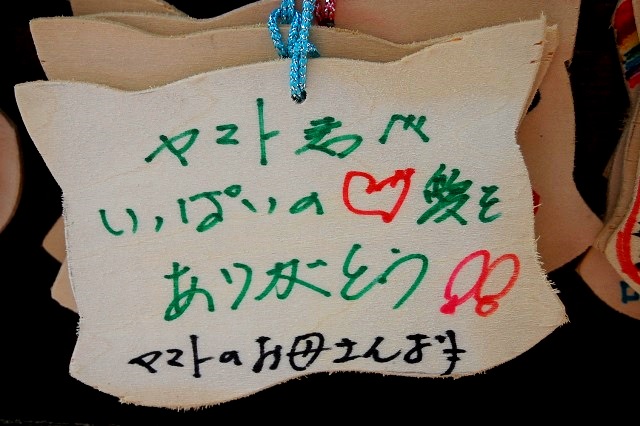 ヤマト君へ
いっぱいの♡愛を
ありがとう!!
ヤマトのお母さんより